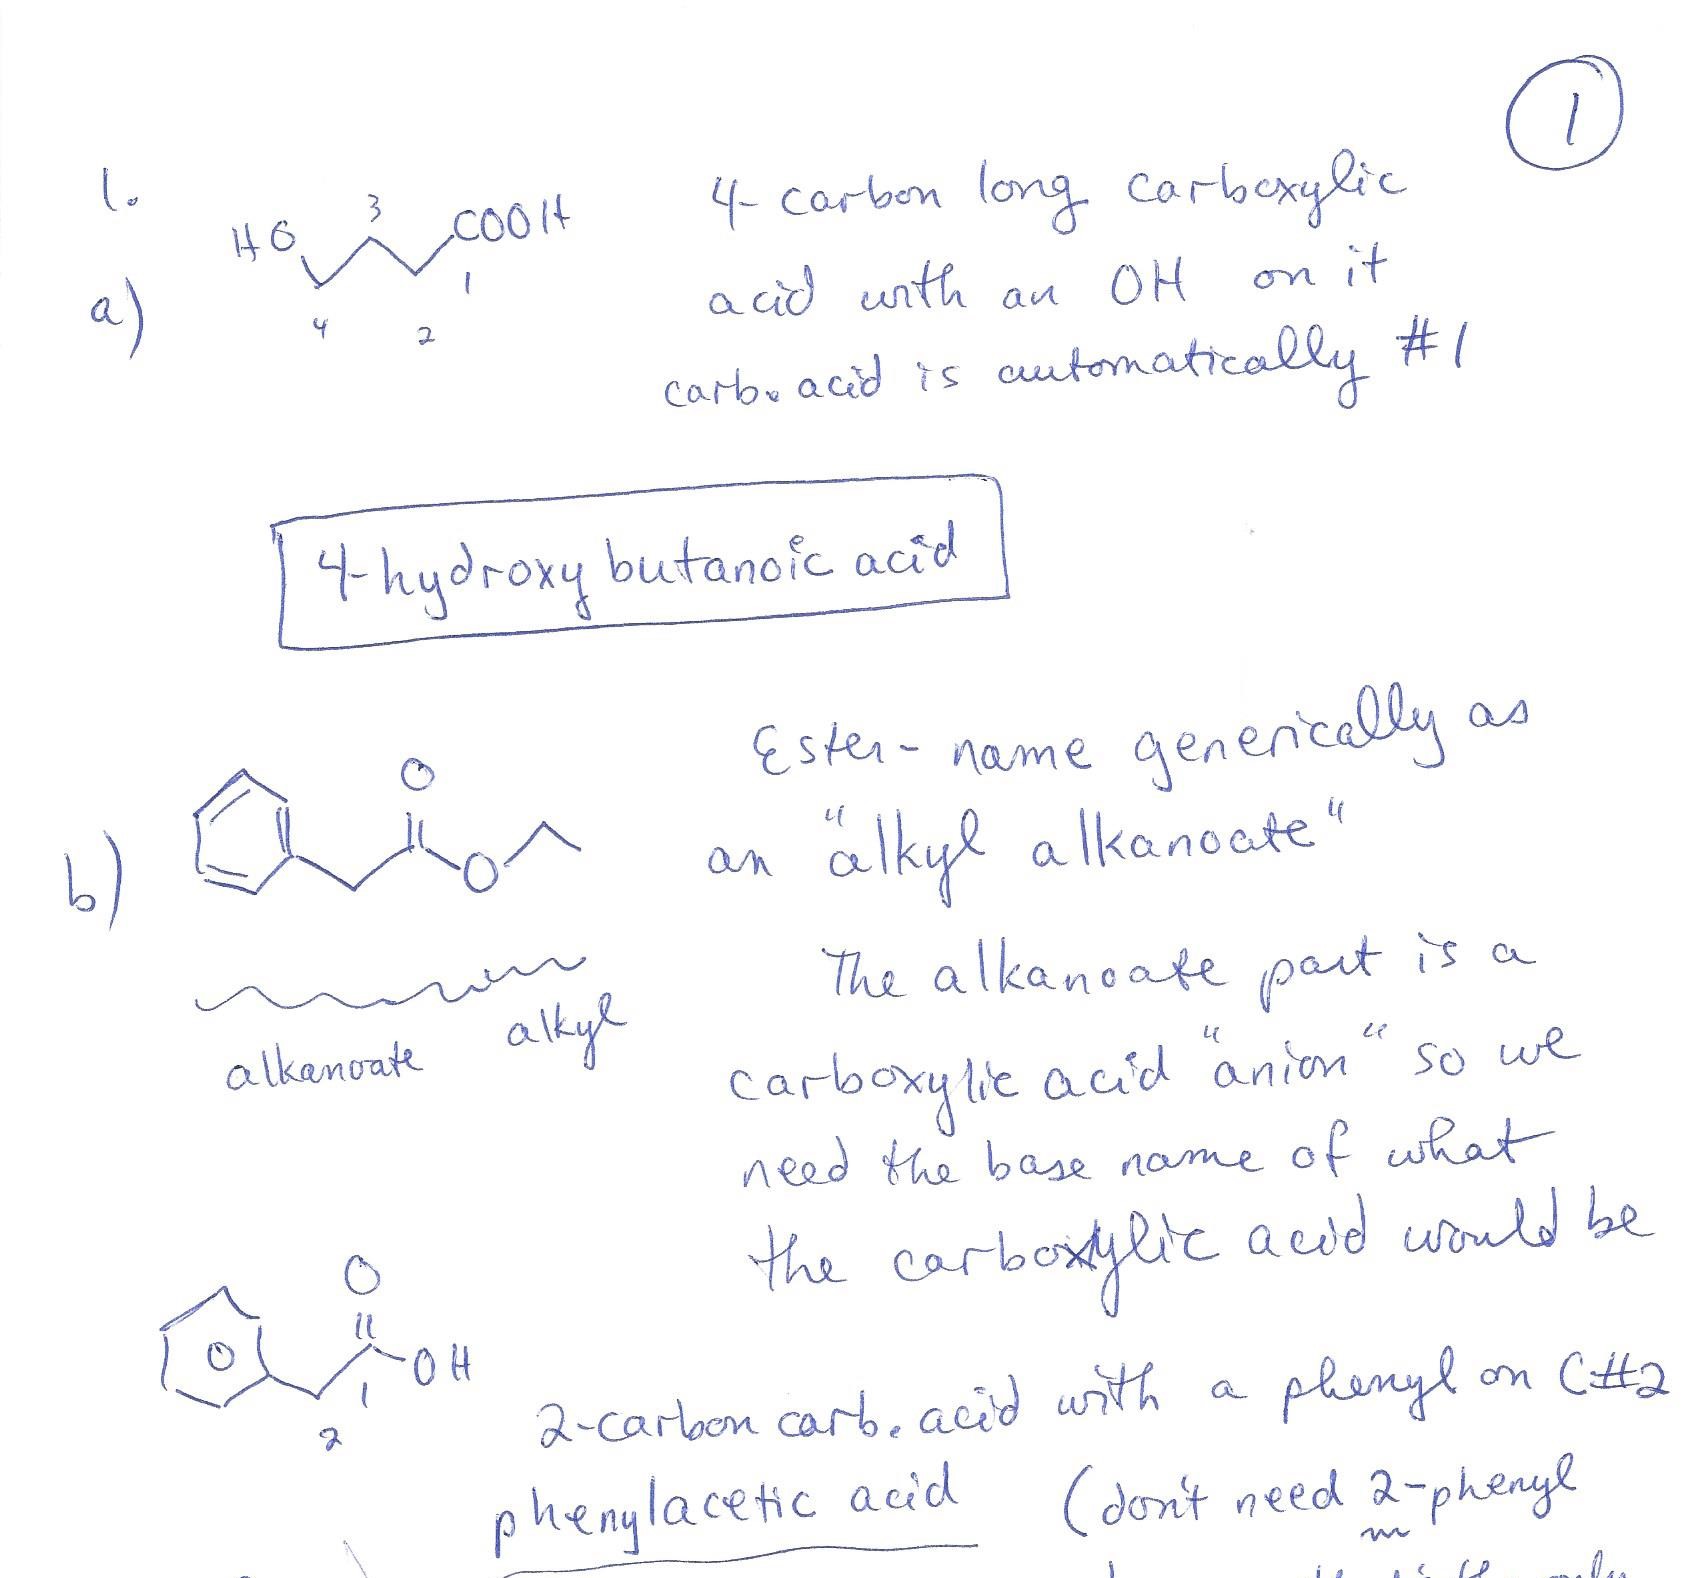 1
1.
a)
HO 3 COOH
4 2 1
4-carbon long carboxylic
acid with an OH on it
carb. acid is automatically #1
4-hydroxybutanoic acid
b)
O
O
alkanoate alkyl
Ester - name generically as
an "alkyl alkanoate"
The alkanoate part is a
carboxylic acid "anion" so we
need the base name of what
the carboxylic acid would be
O
OH
1
2
2-carbon carb. acid with a phenyl on C#2
phenylacetic acid (don't need 2-phenyl